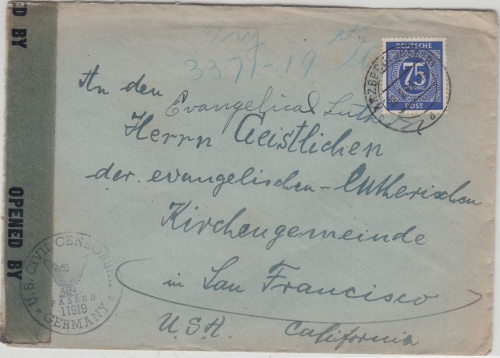 OPENED BY
3371-19
DEUTSCHE
75
PFENNIG
POST
An den
Evangelical Luth
Herrn Geistlichen
der evangelischen-lutherischen
Kirchengemeinde
in San Francisco
USA. California
ED BY
U.S. CIVIL CENSORSHIP
PASSED
11919
GERMANY